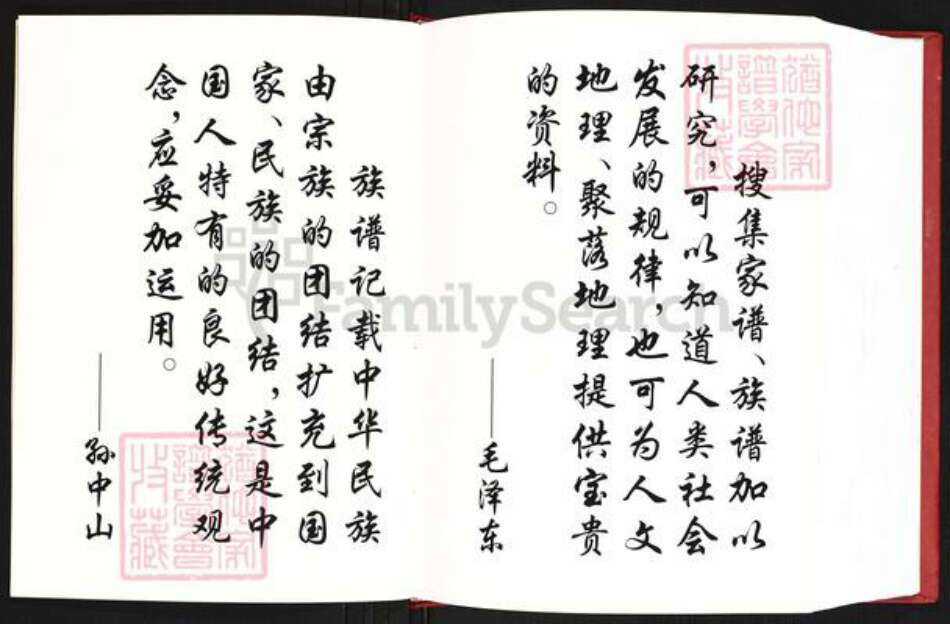 搜集家谱、族谱加以
研究，可以知道人类社会
发展的规律，也可为人文
地理、聚落地理提供宝贵
的资料。
——毛泽东
族谱记载中华民族
由宗族的团结扩充到国
家、民族的团结，这是中
国人特有的良好传统观
念，应妥加运用。
——孙中山
FamilySearch